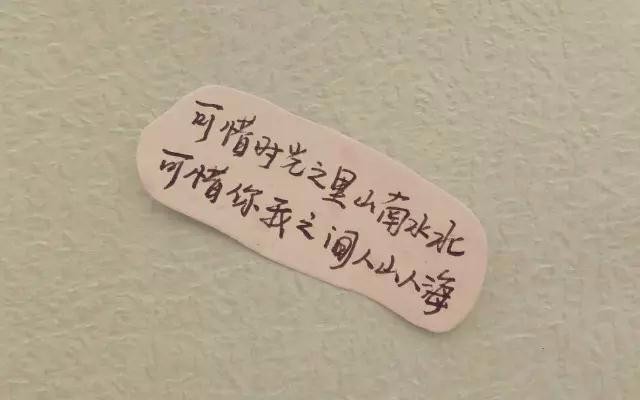 可惜时光之里山南水北
可惜你我之间人山人海